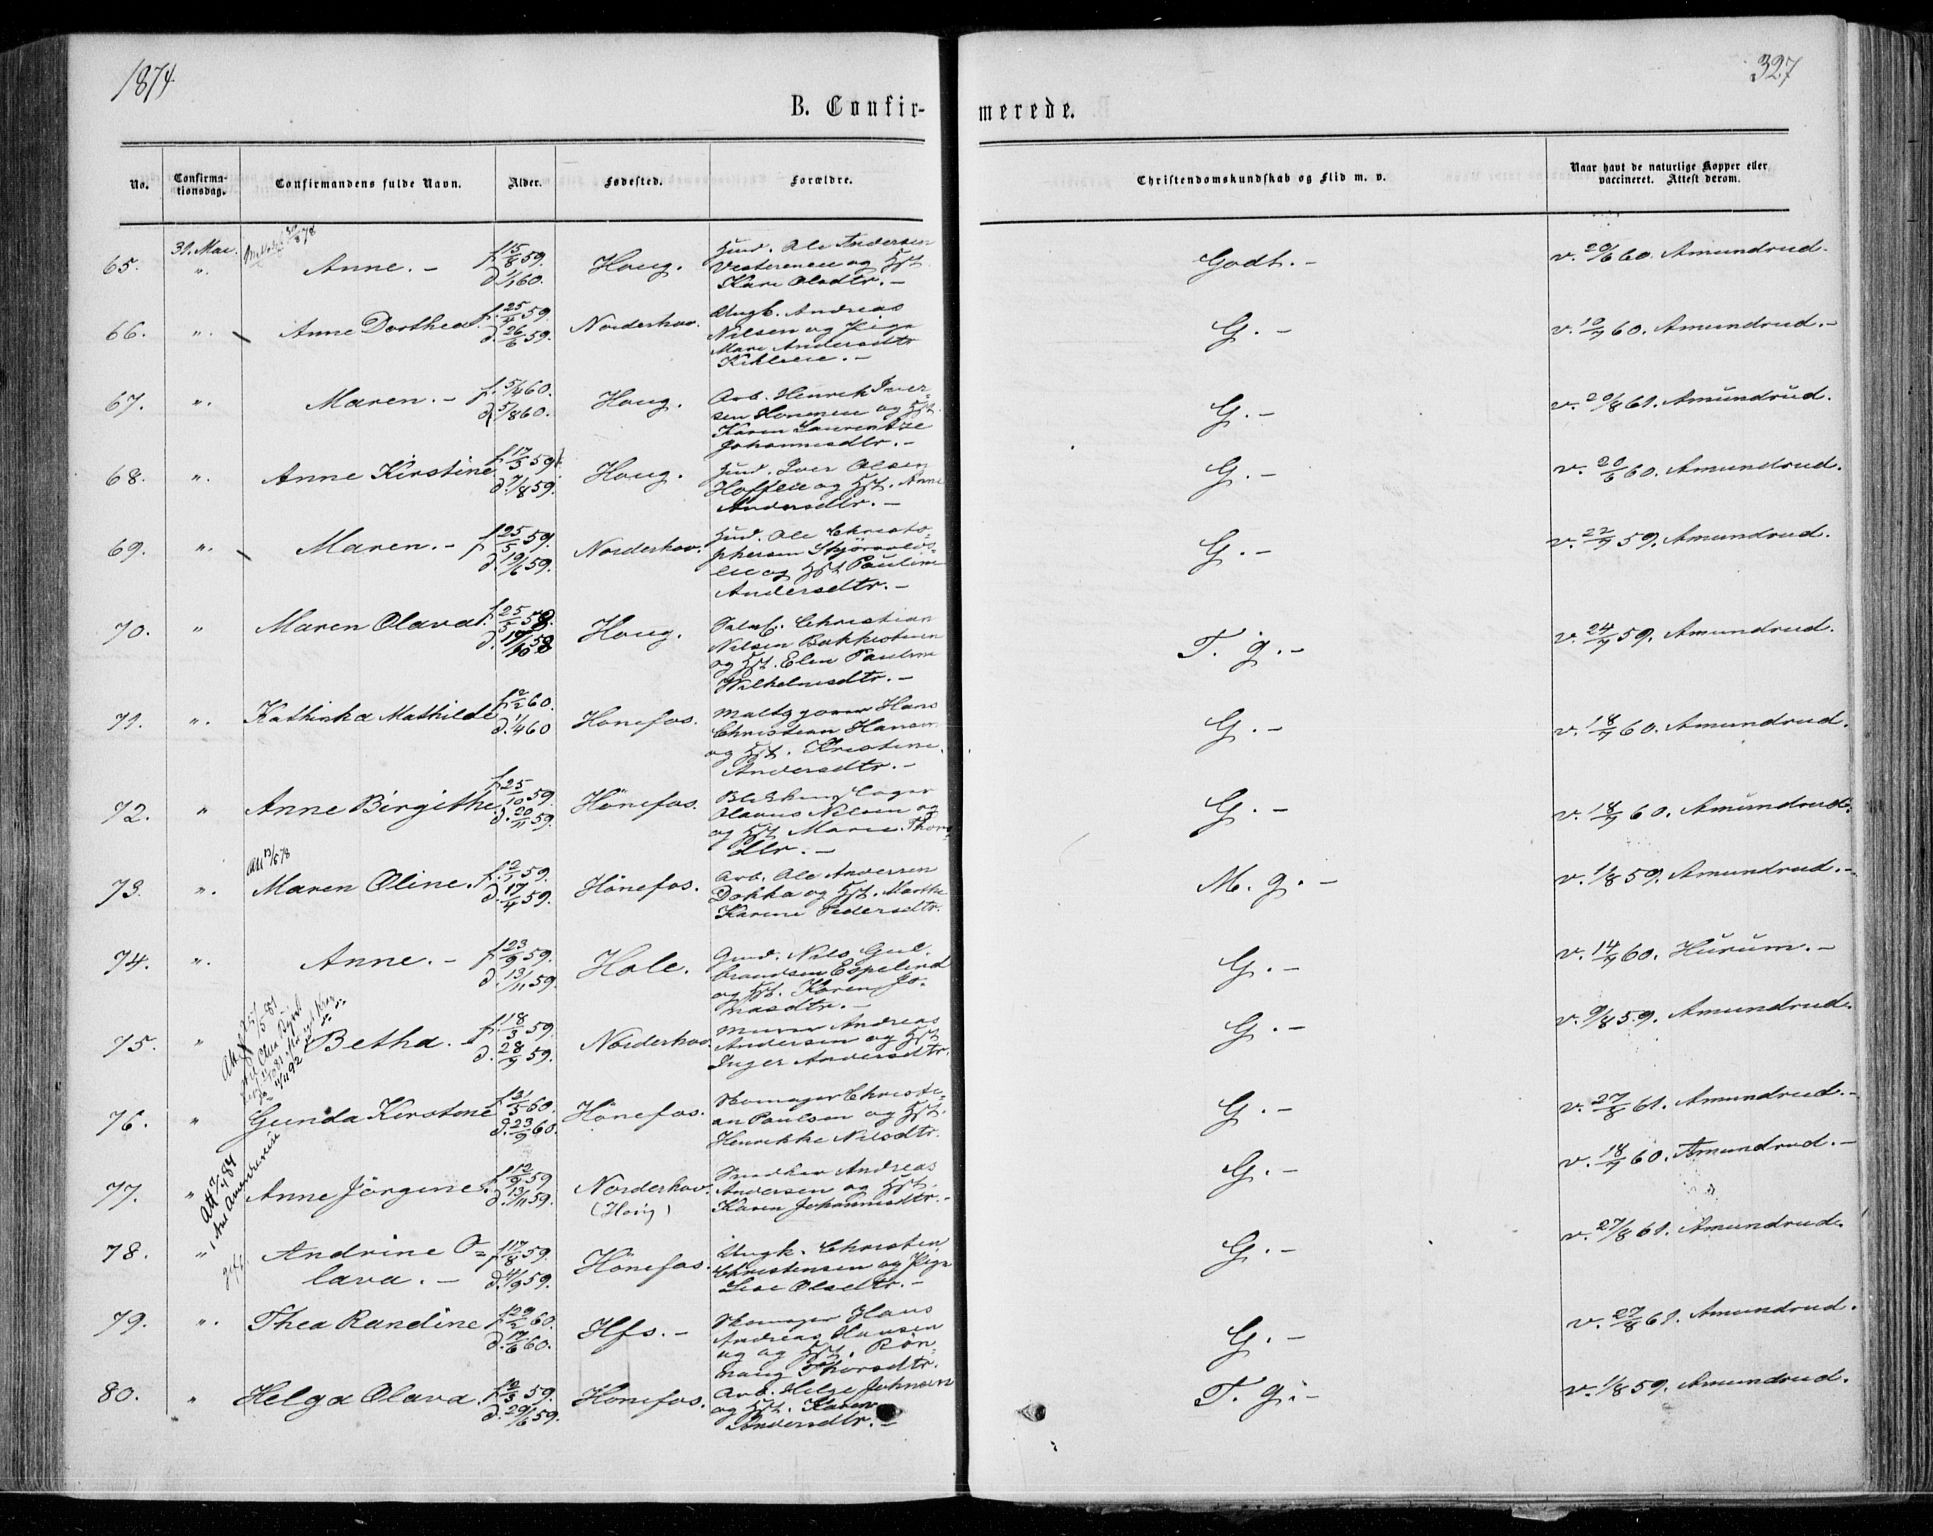 1874
327
B. Confir-
merede.
No.
Confirma-
tionsdag.
Confirmandens fulde Navn.
Alder.
Fødested.
Forældre.
Christendomskundskab og Flid m. v.
Naar havt de naturlige Kopper eller
vaccineret. Attest derom.
65. 31. Mai. Anne. - f. 15/8 59. d. 1/1 60. Houg.
Huusm. Ole Andersen
og Hst.
Kari Olsdtr. -
Godt. - v. 20/6 60. Amundrud.
66. ". Anne Dorthea. f. 25/4 59. d. 26/6 59. Norderhov.
Ungk. Andreas
Nilsen og Pige
Mari Andersdtr
G. - v. 12/7 60. Amundrud. -
67. ". Maren. - f. 5/4 60. d. 5/8 60. Houg.
Arb. Henrik Iver-
sen og Hst.
Karen Laurentze
Johannesdtr. -
G. - v. 20/8 61. Amundrud.
68. ". Anne Kirstine f. 17/5 59. d. 7/8 59. Houg.
Iver Olsen
og Hst. Anne
Andersdtr. -
G. - v. 20/6 60. Amundrud.
69. ". Maren. - f. 25/5 59. d. 19/6 59. Norderhov.
Ole Christo-
phersen
eie og Hst. Pauline
Andersdtr. -
G. - v. 22/7 59. Amundrud.
70. " Maren Olava. f. 25/5 58. d. 17/10 58 Houg.
Christian
Nilsen
og Hst. Elen Pauline
Wilhelmsdtr. -
T. g. - v. 24/7 59. Amundrud.
71. ". Kathinka Mathilde f. 2/2 60. d. 1/4 60 Hønefos.
Maltgjører Hans
Christian Hansen
og Hst. Kristine
Andersdtr. -
G. - v. 18/7 60. Amundrud.
72. " Anne Birgithe f. 25/10 59. d. 20/11 59. Hønefos.
Olavus Nilsen og
og Hst. Maria Thors-
dtr. -
G. - v. 18/7 60. Amundrud.
Att 13/5 78
73. ". Maren Oline. f. 2/1 59. d. 17/4 59. Hønefos.
Arb. Ole Andersen
Dokka og Hst. Marthe
Karine Pedersdtr.
M. g. - v. 1/8 59. Amundrud. -
74. ". Anne. - f. 23/9 59. d. 13/11 59. Hole.
Nils Gul-
brandsen Espelind
og Hst. Karen Jo-
nasdtr. -
G. - v. 14/7 60. Hurum. -
75. " Betha. f. 18/3 59. d. 28/9 59. Norderhov.
Murer Andreas
Andersen og Hst
Inger Andersdtr.
G. - v. 9/8 59. Amundrud.
76. " Gunda Kirstine f. 31/5 60. d. 23/9 60. Hønefos.
Skomager Christi-
an Paulsen og Hst.
Henrikke Nilsdtr.
G. - v. 27/8 61. Amundrud. -
Att 84
77. " Anne Jørgine. f. 12/9 59 d. 13/11 59. Norderhov.
(Houg)
Snedker Andreas
Andersen og Hst.
Karen Johannesdtr. -
G. - v. 18/7 60. Amundrud. -
78. " Andrine O=
lava. - f. 17/8 59. d. 4/9 59. Hønefos.
Ungk. Christen
Christensen og Pige
Lise Olsdtr. -
G. - v. 27/8 61. Amundrud.
79. ". Thea Randine f. 29/2 60. d. 17/6 60. Hfs. -
Skomager Hans
Andreas Hansen
og og Hst. Røn-
naug Thorsdtr.
G. - v. 27/8 61. Amundrud.
80. " Helga Olava. f. 12/3 59. d. 29/6 59. Hønefos.
Arb. Helge Johnsen
og Hst. Karen
Andersdtr. -
T. g. - v. 1/8 59. Amundrud.